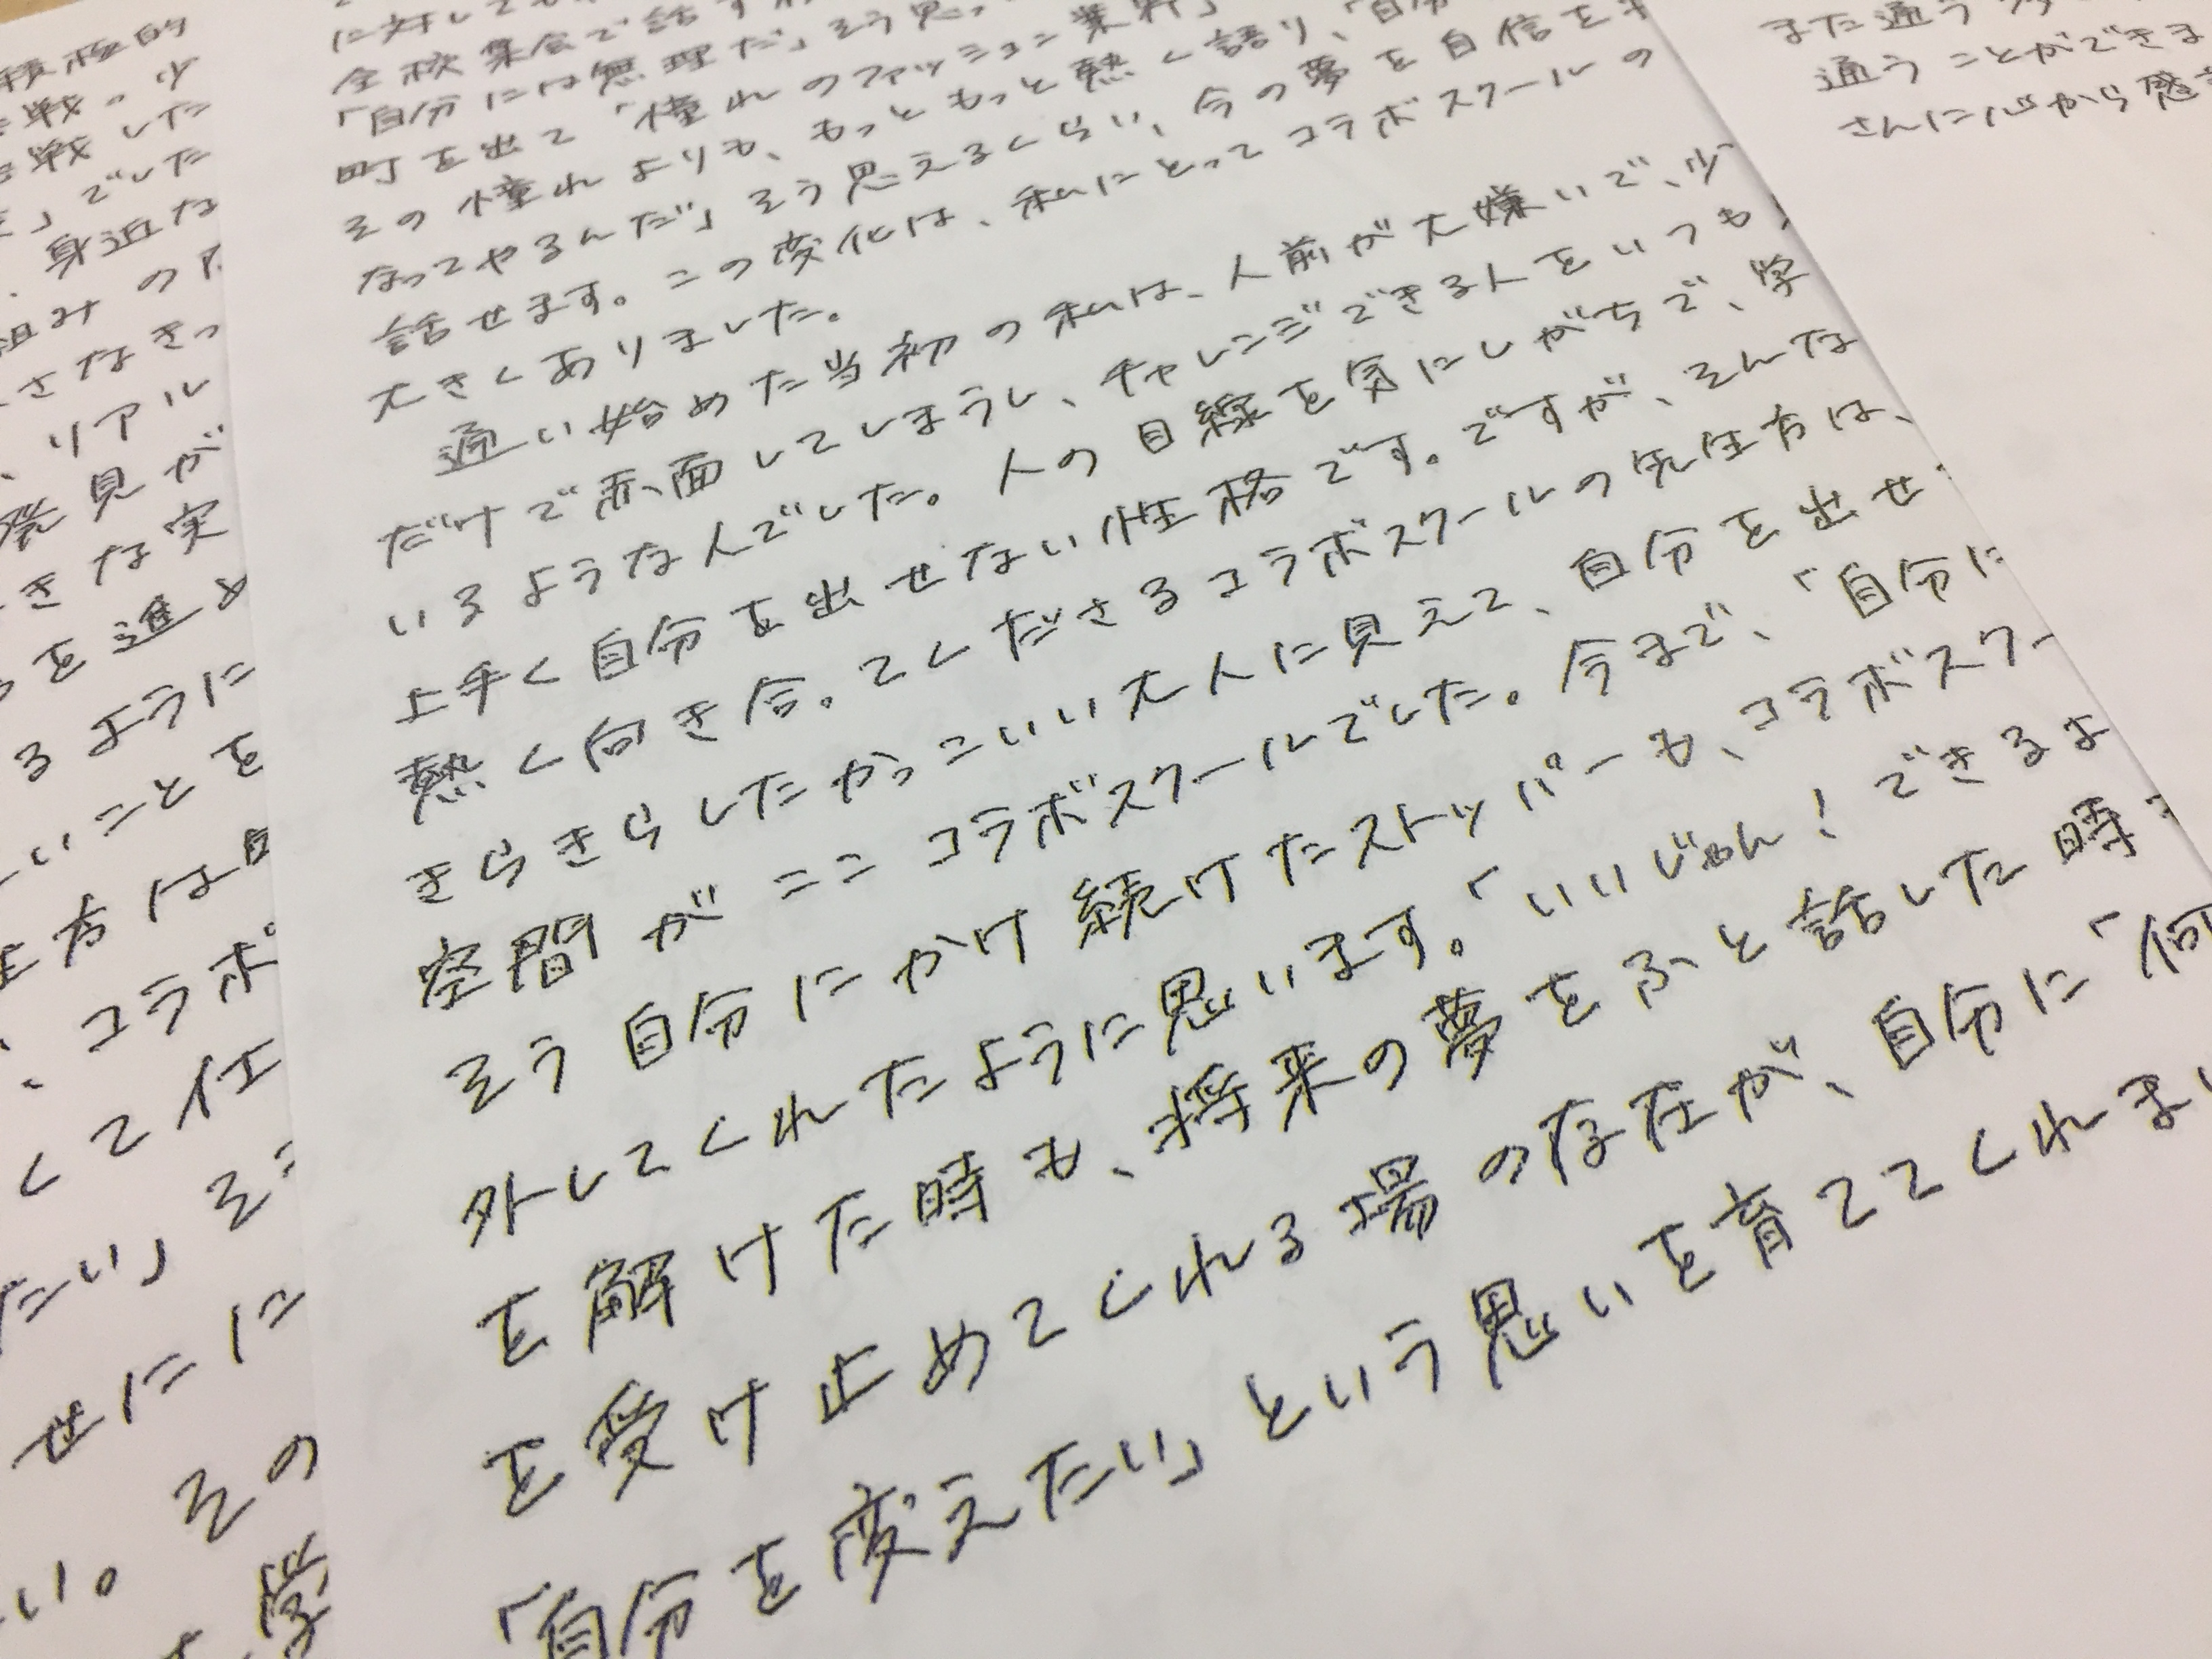 積極的
戦。少
戦した
」でした
身近な
組みの
さなきっ
、リアル
発見が
きな実
を進め
るように
いことを
生方は自
、コラボ
くて仕
たい」そ
せにに
い。その
学
に対しても
全校集会で話す
「自分には無理だ」そう思っ
町を出て「憧れのファッション業界」
その憧れよりも、もっともっと熱く語り、「自分
なってやるんだ」そう思えるくらい、今の夢を自信を
話せます。この変化は、私にとってコラボスクールの
大きくありました。
通い始めた当初の私は、人前が大嫌いで、少
だけで赤面してしまうし、チャレンジできる人をいつも
いるような人でした。人の目線を気にしがちで、学
上手く自分を出せない性格です。ですが、そんな
熱く向き合ってくださるコラボスクールの先生方は、
きらきらしたかっこいい大人に見えて、自分を出せ
空間がここコラボスクールでした。今まで、「自分に
そう自分にかけ続けたストッパーも、コラボスクー
外してくれたように思います。「いいじゃん！できるよ
を解けた時も、将来の夢をふと話した時
を受け止めてくれる場の存在が、自分に「何
「自分を変えたい」という思いを育ててくれまし
また通う
通うことができま
さんに心から感